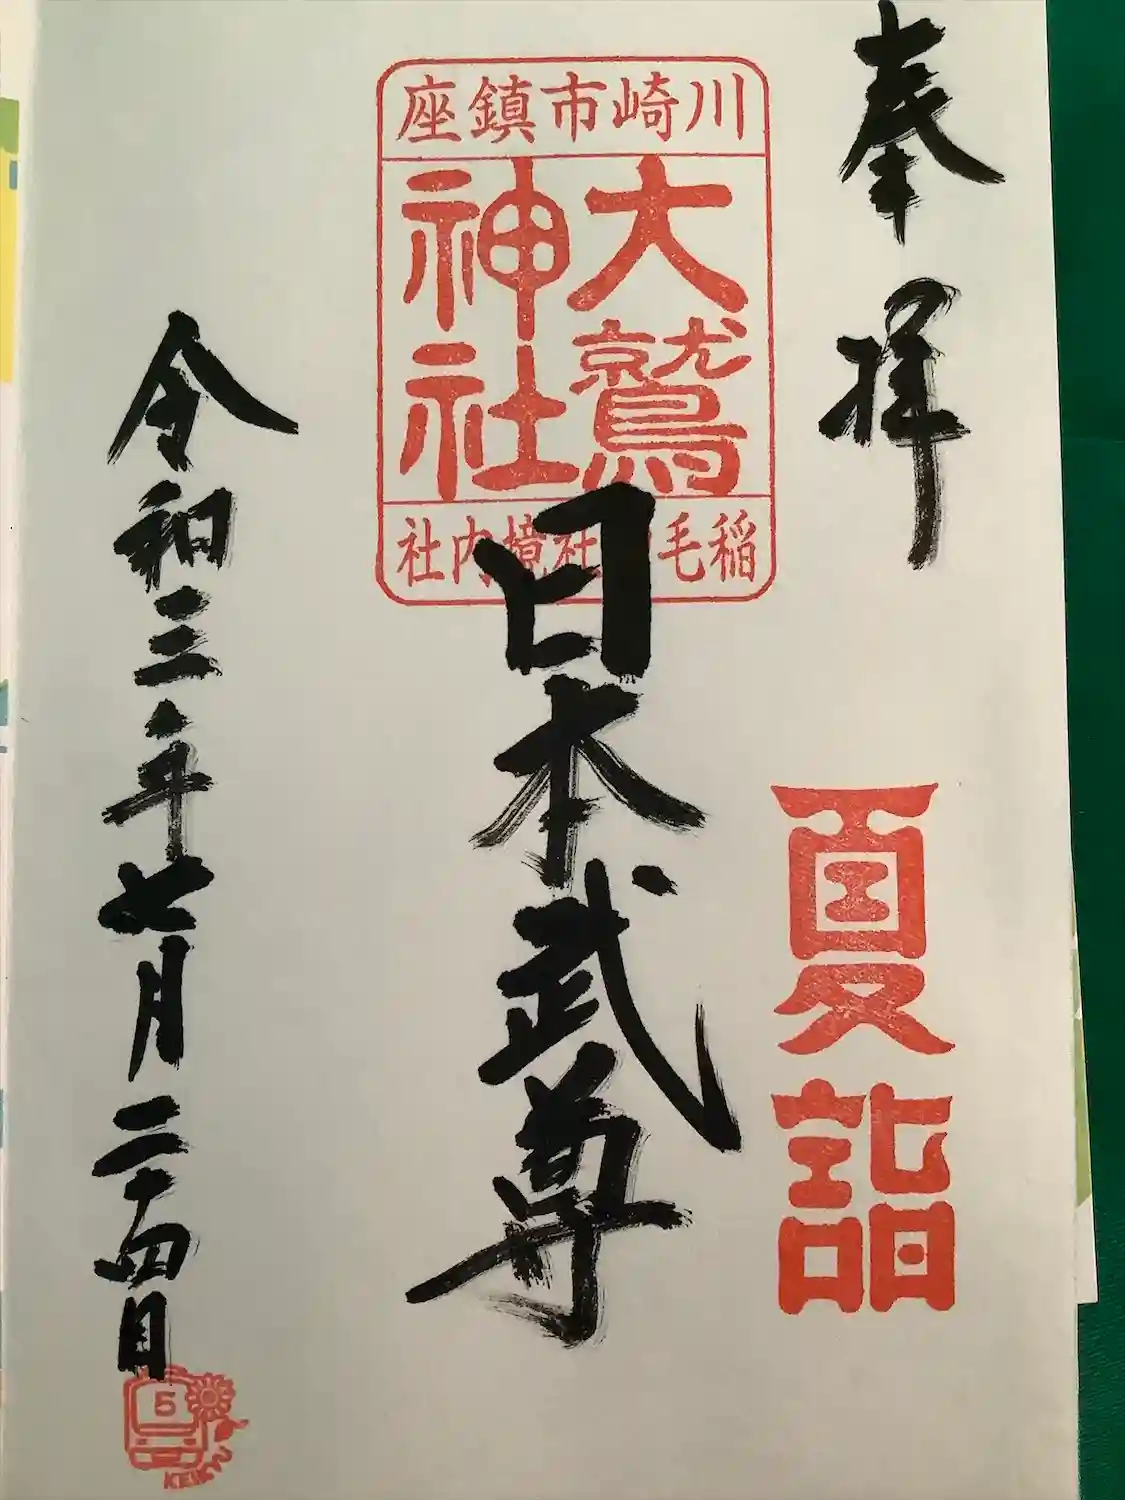 奉拝
夏詣
川崎市鎮座
大鷲
神社
稲毛神社境内社
日本武尊
令和三年七月二十四日
5
KEIKYU